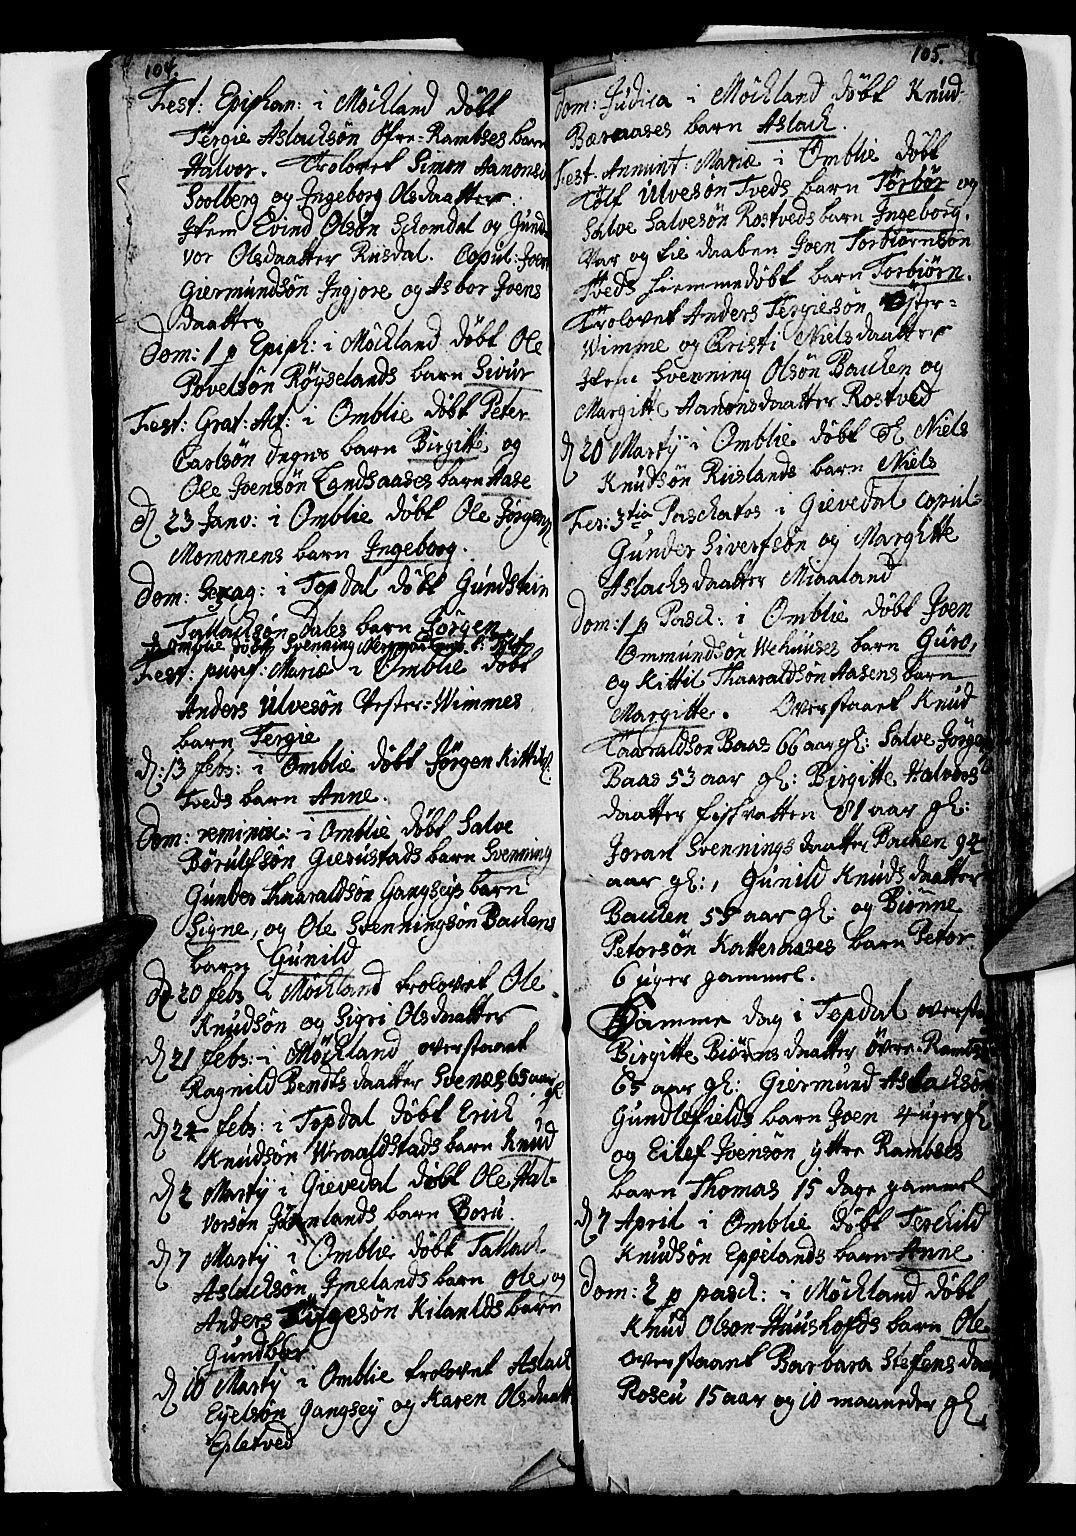 104.
Fest: Epiphan: i Möckland döbt
Tergie Aslachsön öfre-Ramses barn
Halvor. Trolovet Simon Aanons
Soelberg og Ingeborg Olsdaatter.
Item Evind Olsön Skomdal og Gund
vor Olsdaatter Risdal. Copul: Joen
Giermundsön Ingjore og Asbor Joens
daatter
Dom: 1 p Epiph: i Möckland döbt Ole
Povelsön Röyselands barn Sivur
Fest: Grat: Act: i Omblie döbt Peter
Carlsön degns barn Birgitte, og
Ole Joensön Landsaases barn Aase
d 23 Janv: i Omblie döbt Ole Jörgens
Momonens barn Ingeborg.
Dom: Sexag: i Topdal döbt Gundstein
Tallachsön Dales barn Jörgen
i Omblie döbt Svenning
Fest: purif: Mariæ i Omblie döbt
Anders Ulvesön Vester-Wimmes
barn Tergie
d: 13 febr: i Omblie döbt Jörgen Kittils
Tveds barn Anne.
Dom: reminisc: i Omblie döbt Salve
Börulfsön Gierustads barn Svenning
Gunder Thaaraldsön Gangseys barn
Signe, og Ole Svenningsön Bachens
barn Gunild
d 20 febr i Möckland trolovet Ole
Knudsön og Sigri Olsdaatter
d 21 febr: i Möckland overstaaet
Ragnild Bendtsdaatter Svenes 65 aar gl
d 24 febr: i Topdal döbt Erich
Knudsön Wraaldstads barn Knud
d 2 Martij i Gievedal döbt Ole Hal-
vorsön Jörnlands barn Boru.
d 7 Martij i Omblie döbt Tallach
Aslachsön Ipnelands barn Ole, og
Anders Fifgesön Kilanlds barn
Gundbör
d 10 Martij i Omblie trolovet Aslach
Eyelsön Gangsey og Karen Olsdaatt
Espletved
105.
Dom: Judica i Möckland döbt Knud
Bæraases barn Aslach.
Fest. Annunt: Mariæ i Omblie döbt
Tolf Ulvesön Tveds barn Törbör og
Salve Salvesön Rostveds barn Ingeborg.
Var og tie daaben Joen Torbiörnsön
Tveds hiemmedöbt barn Torbiörn.
Trolovet Anders Tergiesön Öster-
Wimme og Christi Nielsdaatter
Item Svenning Olsön Bachen og
Margitte Aanonsdaatter Rostved
d 20 Martij i Omblie döbt Niels
Knudsön Rislands barn Niels
Fer: 3tia Paschatos i Gievedal copul-
Gunder Sivertsön og Margitte
Aslachsdaatter Miaaland
Dom: 1 p Pasch: i Omblie döbt Joen
Ommundsön Wehuuses barn Guro,
og Kittil Thaaraldsön Aasens barn
Margitte. Overstaaet Knud
Taaraldson Baas 66 aar gl: Salve Jörgens
Baas 53 aar gl: Birgitte Halvors
daatter fiskvatten 81 aar gl:
Joran Svenningsdaatter Bachen 94
aar gl:, Gunild Knudsdaatter
Bachen 55 aar gl: og Biönne
Petersön Katteraases barn Peter
6 uger gammel.
Samme dag i Topdal oversta
Birgitte Biörnsdaatter övre-Ramses
65 aar gl: Giermund Aslachsön
Gundlefields barn Joen 4 uger gl
og Eilef Joensön yttre Ramses
barn Thomas 15 dage gammel
d 7 April i Omblie döbt Teschild
Knudsön Eppelands barn Anne
Dom: 2 p pasch: i Möckland döbt
Knud Olson Haushofds barn Ole
overstaaet Barbara Stefensdaa
Roseu 15 aar og 10 maaneder gl.